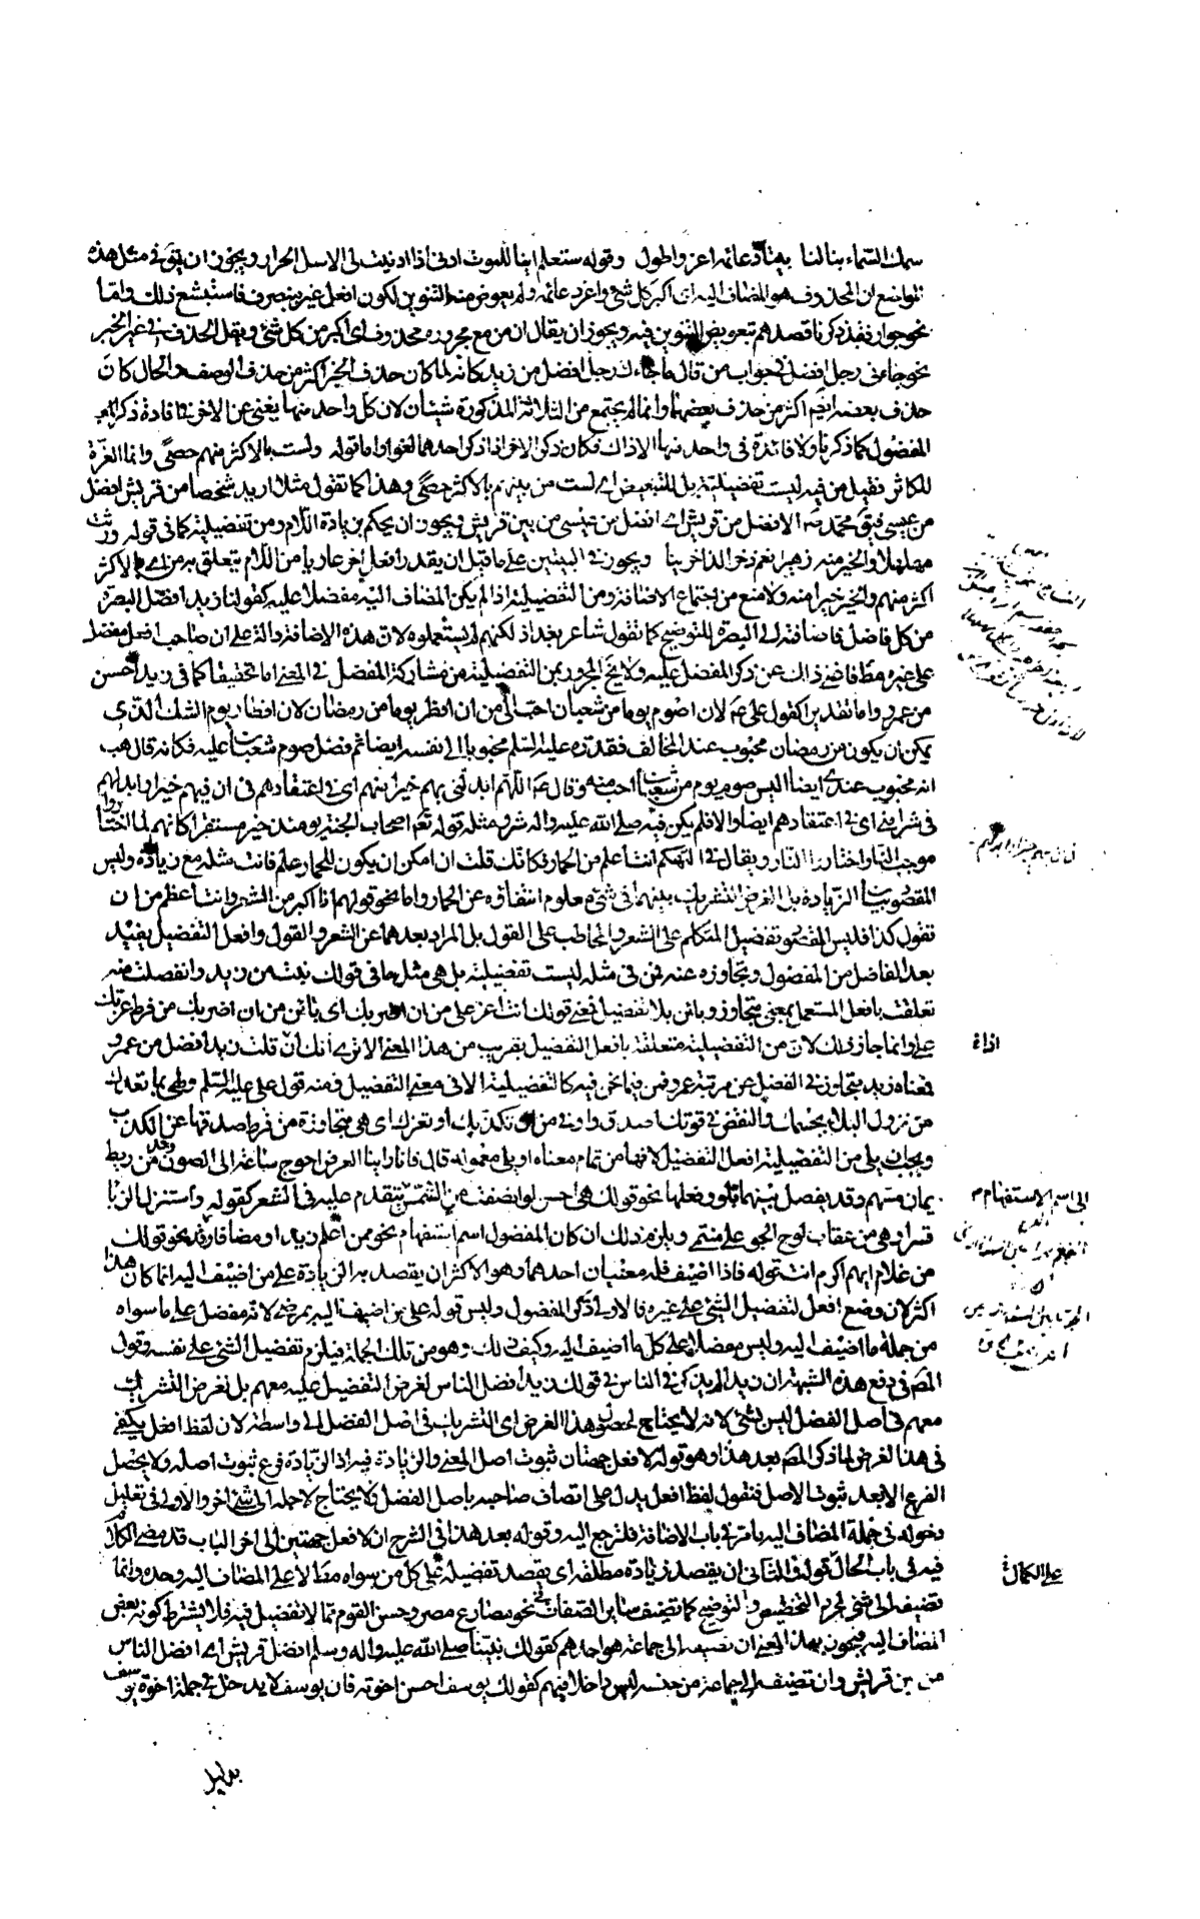 سمك السماء بنى لنا بيتا دعائمه اعز واطول وقوله ستعلم اينا للموت ادنى اذا ادنيت لى الاسل الحرار ويجوز ان يق فى مثل هذه
المواضع ان المحذوف هو المضاف اليه اى اكبر كل شئ واعز دعائمه ولم يعوض منه التنوين لكون افعل غير منصرف فاستبشع ذلك واما
نحو جوار فقد ذكرنا قصدهم تعويض التنوين فيه ويجوز ان يقال ان من مع مجروره محذوف اى اكبر من كل شئ ويقل الحذف فى غير الخبر
نحو جاءنى رجل افضل فى جواب من قال ما جاءك رجل افضل من زيد كانه لما كان حذف الخبر اكثر من حذف الوصف والحال كان
حذف بعضه ايضم اكثر من حذف بعضهما وانما لم يجتمع من الثلاثة المذكورة شيئان لان كل واحد منها يغنى عن الاخر فى افادة ذكر
المفضول كما ذكرنا ولا فائدة فى واحد منها الا ذاك فكان ذكر الاخر اذا ذكر احدهما لغوا واما قوله ولست بالاكثر منهم حصى وانما العزة
للكاثر فقيل من فيه ليست تفضيلية بل للتبعيض اى لست من بينهم بالاكثر حصى وهذا كما تقول مثلا اريد شخصا من قريش افضل
من عيسى فيق محمد ص الافضل من قريش اى افضل من عيسى من بين قريش ويجوز ان يحكم بزيادة اللام ومن تفضيلية كما فى قوله ورثت
مهلهلا والخير منه زهيرا نعم ذخر الذاخرينا ويجوز فى البيتين على ما قيل ان يقدر افعل اخر عاريا من اللام يتعلق به من اى بالاكثر
اكثر منهم والخير خيرا منه ولا منع من اجتماع الاضافة ومن التفضيلية اذا لم يكن المضاف اليه مفضلا عليه كقولنا زيد افضل البصرة
من كل فاضل فاضافته الى البصرة للتوضيح كما تقول شاعر بغداد لكنهم لم يستعملوه لان هذه الاضافة دالة على ان صاحب افعل مفضل
على غيره مطلقا فاغنى ذاك عن ذكر المفضل عليه ولا يخ المجرور بمن التفضيلية من مشاركة المفضل فى المعنى اما تحقيقا كما فى زيد احسن
من عمرو واما تقديرا كقول على ع لان اصوم يوما من شعبان احب الى من ان افطر يوما من رمضان لان افطار يوم الشك الذى
يمكن ان يكون من رمضان محبوب عند المخالف فقدره عليه السلم محبوبا الى نفسه ايضا ثم فضل صوم شعبان عليه فكانه قال هب
انه محبوب عندى ايضا اليس صوم يوم من شعبان احب منه وقال ع اللهم ابدلنى بهم خيرا منهم اى فى اعتقادهم فى ان فيهم خيرا وابدلهم
بى شرا منى اى فى اعتقادهم ايضا والا فلم يكن فيه صلى الله عليه واله شر ومثله قوله تعم اصحاب الجنة يومئذ خير مستقرا كانهم لما اختاروا
موجب النار واختاروا النار ويقال فى التهكم انت اعلم من الحمار فكانك قلت ان امكن ان يكون للحمار علم فانت مثله مع زيادة وليس
المقصود بيان الزيادة بل الغرض التشريك بينهما فى شئ معلوم انتفاؤه عن الحمار واما نحو قولهم انا اكبر من الشعر وانت اعظم من ان
تقول كذا فليس المقصود تفضيل المتكلم على الشعر والمخاطب على القول بل المراد بعدهما عن الشعر والقول وافعل التفضيل يفيد
بعد الفاضل من المفضول وتجاوزه عنه فمن فى مثله ليست تفضيلية بل هى مثل ما فى قولك بنت من زيد وانفصلت منه
تعلقت بافعل المستعمل بمعنى متجاوز وبائن بلا تفضيل فمعنى قولك انت اعز على من ان اضربك اى بائن من ان اضربك من فرط عزتك
على وانما جاز ذلك لان من التفضيلية متعلقة بافعل التفضيل بقريب من هذا المعنى الا ترى انك اذا قلت زيد افضل من عمرو
فمعناه زيد متجاوز فى الفضل عن مرتبة عمرو فمن فيما نحن فيه كالتفضيلية الا فى معنى التفضيل ومنه قول على عليه السلم ولهى بما تعدك
من نزول البلاء بجسمك والنقض فى قوتك اصدق واوفى من ان تكذبك او تغرك اى هى متجاوزة من فرط صدقها عن الكذب
ويجب ان يلى من التفضيلية افعل التفضيل لانها من تمام معناه او يلى معموله قال فانا راينا العرض احوج ساعة الى الصون من ريط
يمان مسهم وقد يفصل بينهما بلو وفعلها نحو قولك هى احسن لو انصفت من الشمس وقد يتقدم عليه فى الشعر كقوله واستنزل الزبا
قسرا وهى من عقاب لوح الجو اعلى منتمى ويلزم ذلك ان كان المفضول اسم استفهام نحو ممن اعلم زيد او مضافا اليه نحو قولك
من غلام ايهم اكرم انت قوله فاذا اضيف فله معنيان احدهما وهو الاكثر ان يقصد به الزيادة على من اضيف اليه انما كان هذا
اكثر لان وضع افعل لتفضيل الشئ على غيره فالاولى ذكر المفضول وليس قوله على من اضيف اليه بمرضى لانه مفضل على ما سواه
من جملة ما اضيف اليه وليس مفضلا على كل ما اضيف اليه وكيف ذلك وهو من تلك الجملة فيلزم تفضيل الشئ على نفسه وقول
المص فى دفع هذه الشبهة ان زيدا لم يذكر فى الناس فى قولك زيد افضل الناس لغرض التفضيل عليه معهم بل لغرض التشريك
معهم فى اصل الفضل ليس بشئ لانه لا يحتاج لحصول هذا الغرض اى التشريك فى اصل الفضل الى واسطة لان لفظ افعل يكفى
فى هذا الغرض لما ذكر المص بعد هذا وهو قوله لافعل جهتان ثبوت اصل المعنى والزيادة فيه اذ الزيادة فرع ثبوت اصله ولا يحصل
الفرع الا بعد ثبوت الاصل فنقول لفظ افعل يدل على اتصاف صاحبه باصل الفضل ولا يحتاج لاجله الى شئ اخر والاولى فى تعليل
دخوله فى جملة المضاف اليه ما مر فى باب الاضافة فلنرجع اليه وقوله بعد هذا فى الشرح ان لافعل جهتين الى اخر الباب قد مضى الكلام
فيه فى باب الحال قوله والثانى ان يقصد زيادة مطلقة اى يقصد تفضيله على كل من سواه مطلقا لا على المضاف اليه وحده وانما
تضيفه الى شئ لمجرد التخصيص والتوضيح كما تضيف سائر الصفات نحو مصارع مصر وحسن القوم مما لا تفضيل فيه فلا يشترط كونه بعض
المضاف اليه فيجوز بهذا المعنى ان تضيفه الى جماعة هو احدهم كقولك نبينا صلى الله عليه واله وسلم افضل قريش اى افضل الناس
من بين قريش وان تضيفه الى جماعة من جنسه ليس داخلا فيهم كقولك يوسف احسن اخوته فان يوسف لا يدخل فى جملة اخوة يوسف
اذا
الى اسم الاستفهام م
على الكمال
بدليل